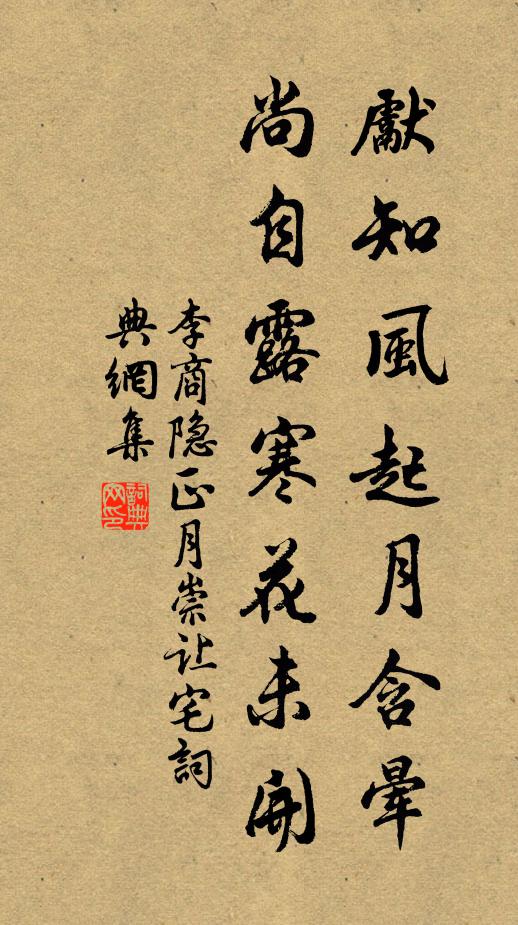 獻知風起月含暈
尚自露寒花未開
李商隐正月崇让宅詞
典網集
詞典
网印